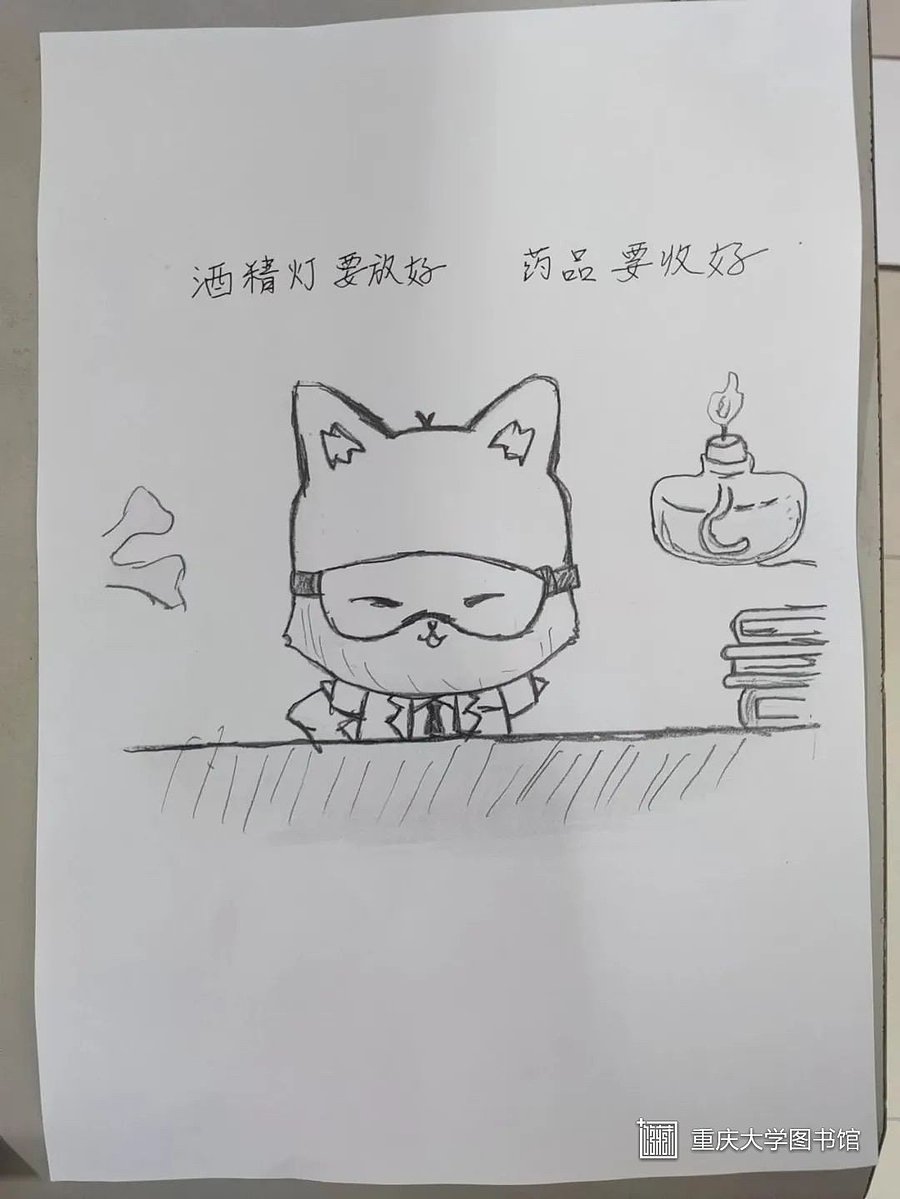 酒精灯要放好 药品要收好
重庆大学图书馆